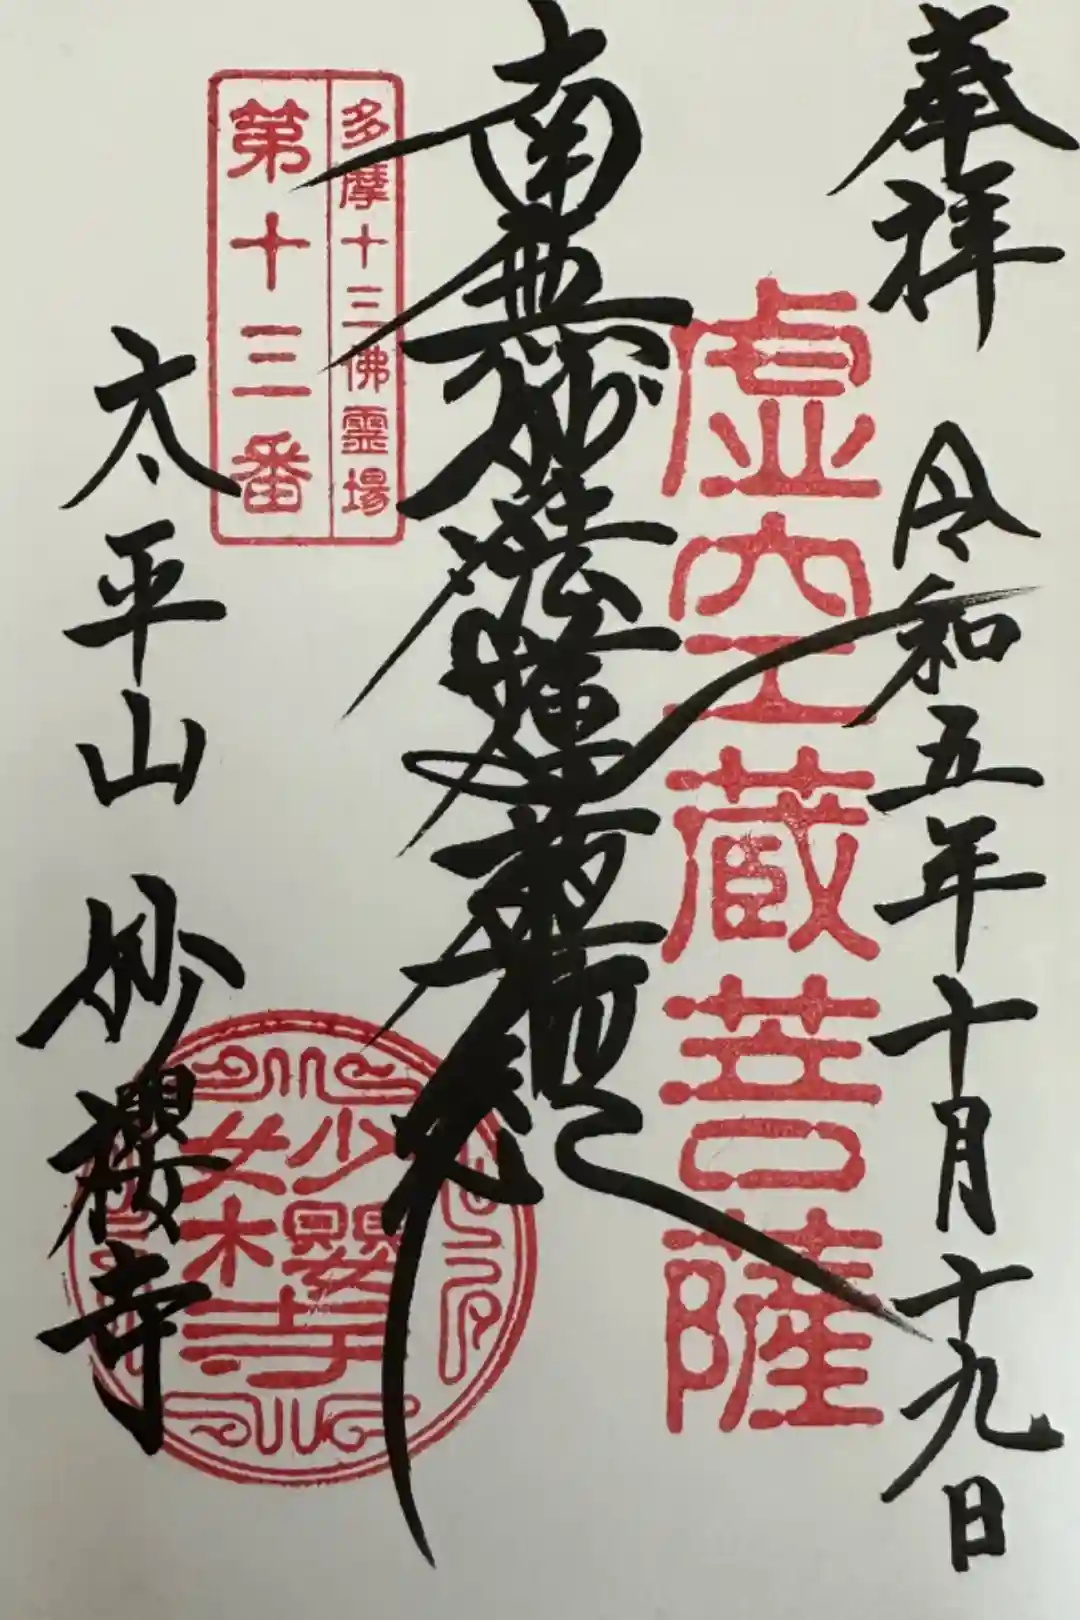 奉拝
令和五年十月十九日
虚空蔵菩薩
南無妙法蓮華経
多摩十三佛霊場
第十三番
太平山
妙櫻寺
妙櫻寺